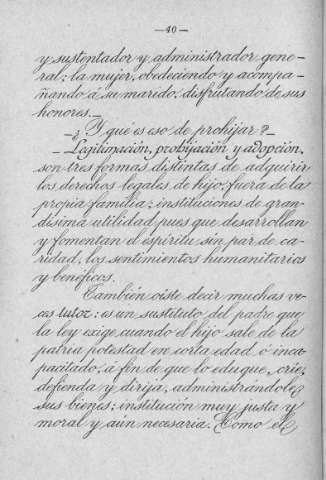 —40—
y sustentador y administrador gene-
ral; la mujer, obedeciendo y acompa-
ñando á su marido, disfrutando de sus
honores.—
—¿Y qué es eso de prohijar?—
—Legitimación, prohijación y adopción,
son tres formas distintas de adquirir
los derechos legales de hijo, fuera de la
propia familia; instituciones de gran-
dísima utilidad, pues que desarrollan
y fomentan el espíritu sin par de ca-
ridad, los sentimientos humanitarios
y benéficos.
También oiste decir muchas ve-
ces tutor: es un sustituto del padre que
la ley exige cuando el hijo sale de la
patria potestad en corta edad ó inca-
pacitado, á fin de que lo eduque, crie,
defienda y dirija, administrándole
sus bienes; institución muy justa y
moral y aun necesaria. Como el